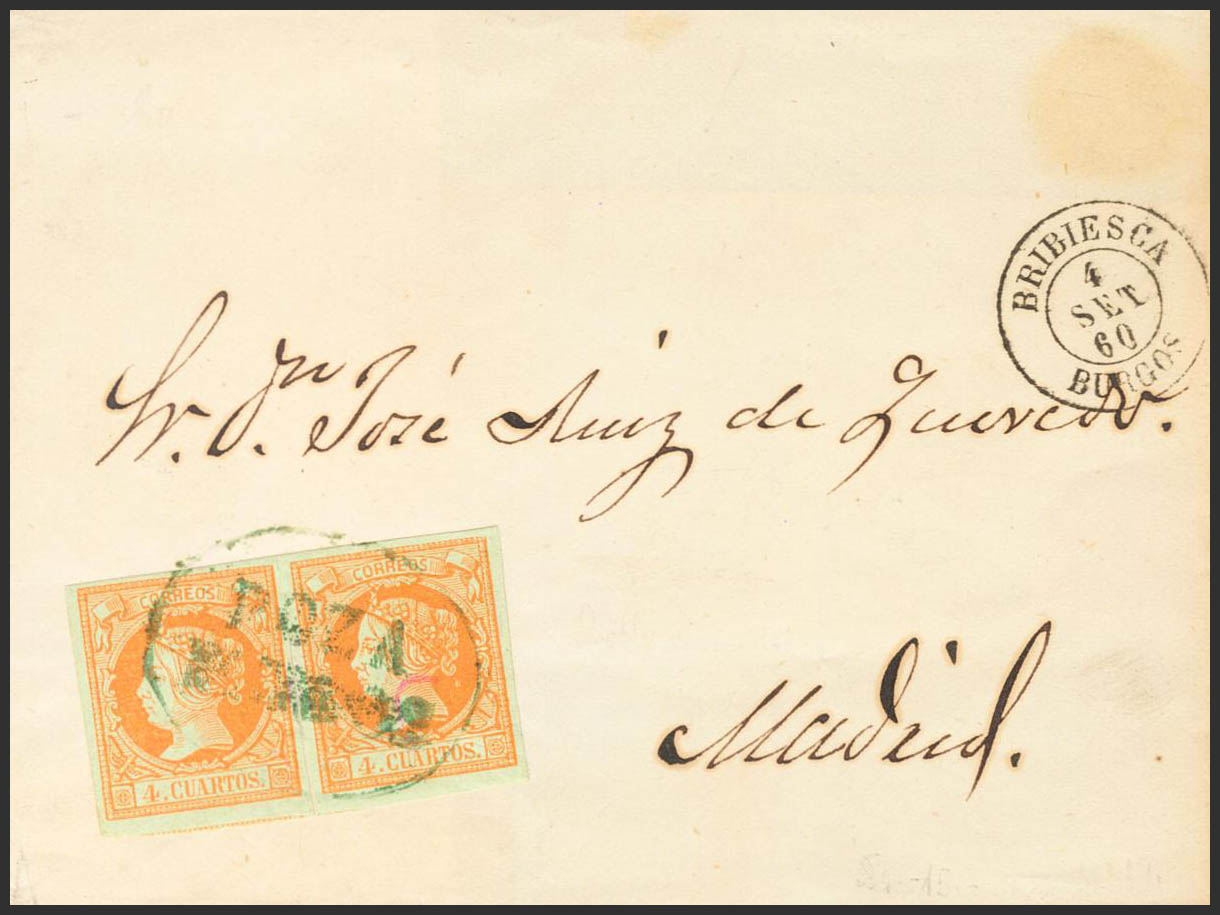 BRIBIESCA
4
SET
60
BURGOS
Sr. Dn. José Ruiz de Quevedo.
CORREOS CORREOS
POZA
4. CUARTOS. 4. CUARTOS.
Madrid.